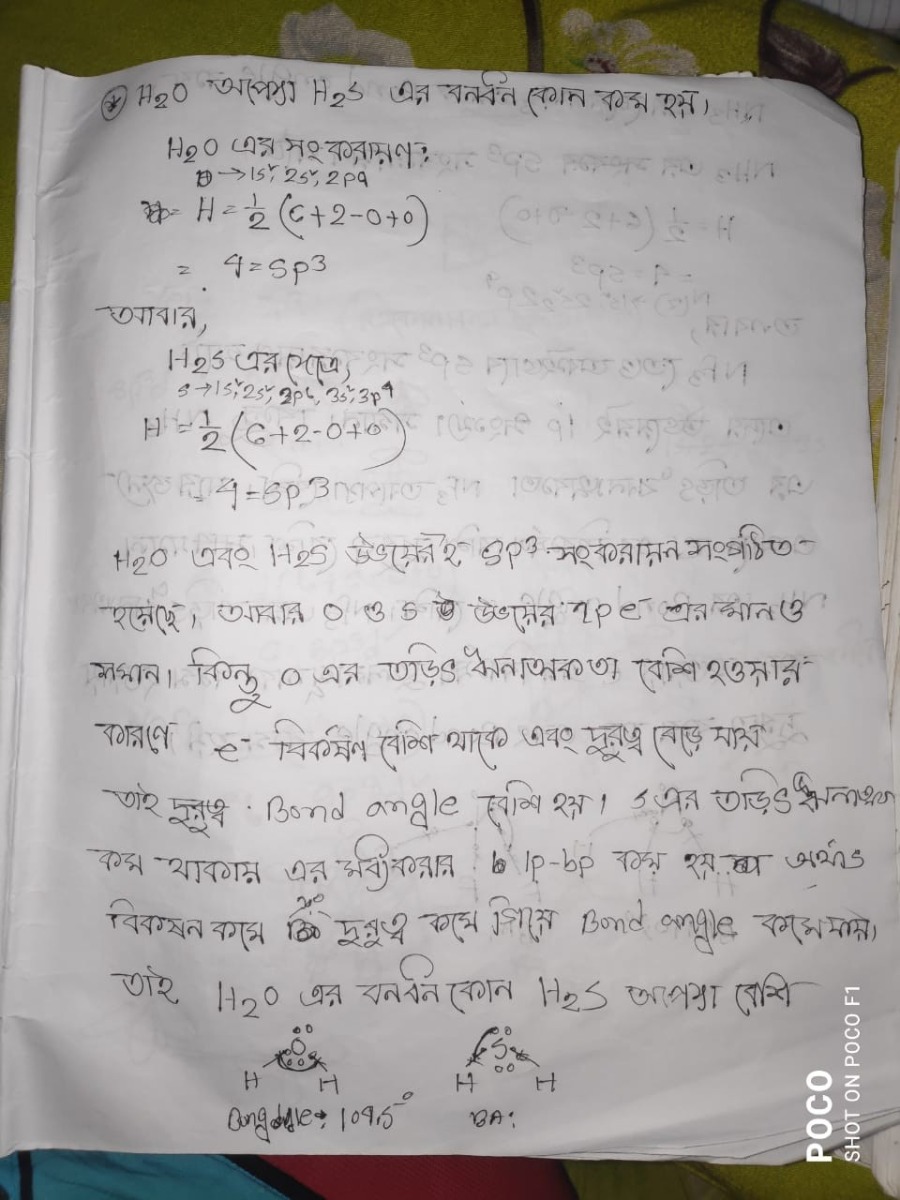 * H2O অপেক্ষা H2S এর বনধন কোন কম হয়।
H2O এর সংকরায়ণ:
O → 1s², 2s², 2p4
H = 1/2 (6+2-0+0)
= 4 = sp3
আবার,
H2S এর ক্ষেত্রে,
S → 1s², 2s², 2p6, 3s², 3p4
H = 1/2 (6+2-0+0)
= 4 = sp3
H2O এবং H2S উভয়েরই sp3 সংকরায়ন সংগঠিত
হয়েছে, আবার O ও S উভয়ের lp e- এর মান ও
সমান। কিন্তু O এর তড়িৎ ঋনাত্মকতা বেশি হওয়ার
কারণে e- বিকর্ষণ বেশি থাকে এবং দূরুত্ব বেড়ে যায়
তাই দূরুত্ব Bond angle বেশি হয়। S এর তড়িৎ ঋনাত্মক
কম থাকায় এর মধ্যকার lp-bp কম হয় অর্থাৎ
বিকষন কমে দূরুত্ব কমে গিয়ে Bond angle কমে যায়।
তাই H2O এর বনধন কোন H2S অপেক্ষা বেশি
O S
H H H H
109.5° BA:
POCO
SHOT ON POCO F1